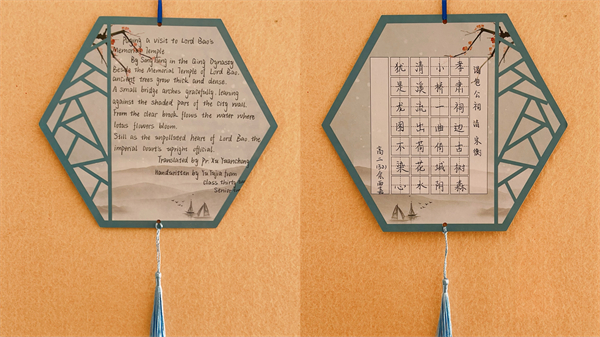 Paying a visit to Lord Bao's
Memorial Temple
By Song Yang in the Qing Dynasty
Beside the Memorial Temple of Lord Bao,
ancient trees grow thick and dense.
A small bridge arches gracefully, leaning
against the shaded part of the city wall.
From the clear brook flows the water where
lotus flowers bloom.
Still as the unpolluted heart of Lord Bao the
imperial court's upright official.
Translated by Pr. Xu Yuanchong
Handwritten by Yu Yajia from
class thirty
Senior
谒包公祠 清 宋衡
孝肃祠边古树森
小桥一曲倚城阴
清流出花水
犹是龙图不染心
高二(32)余